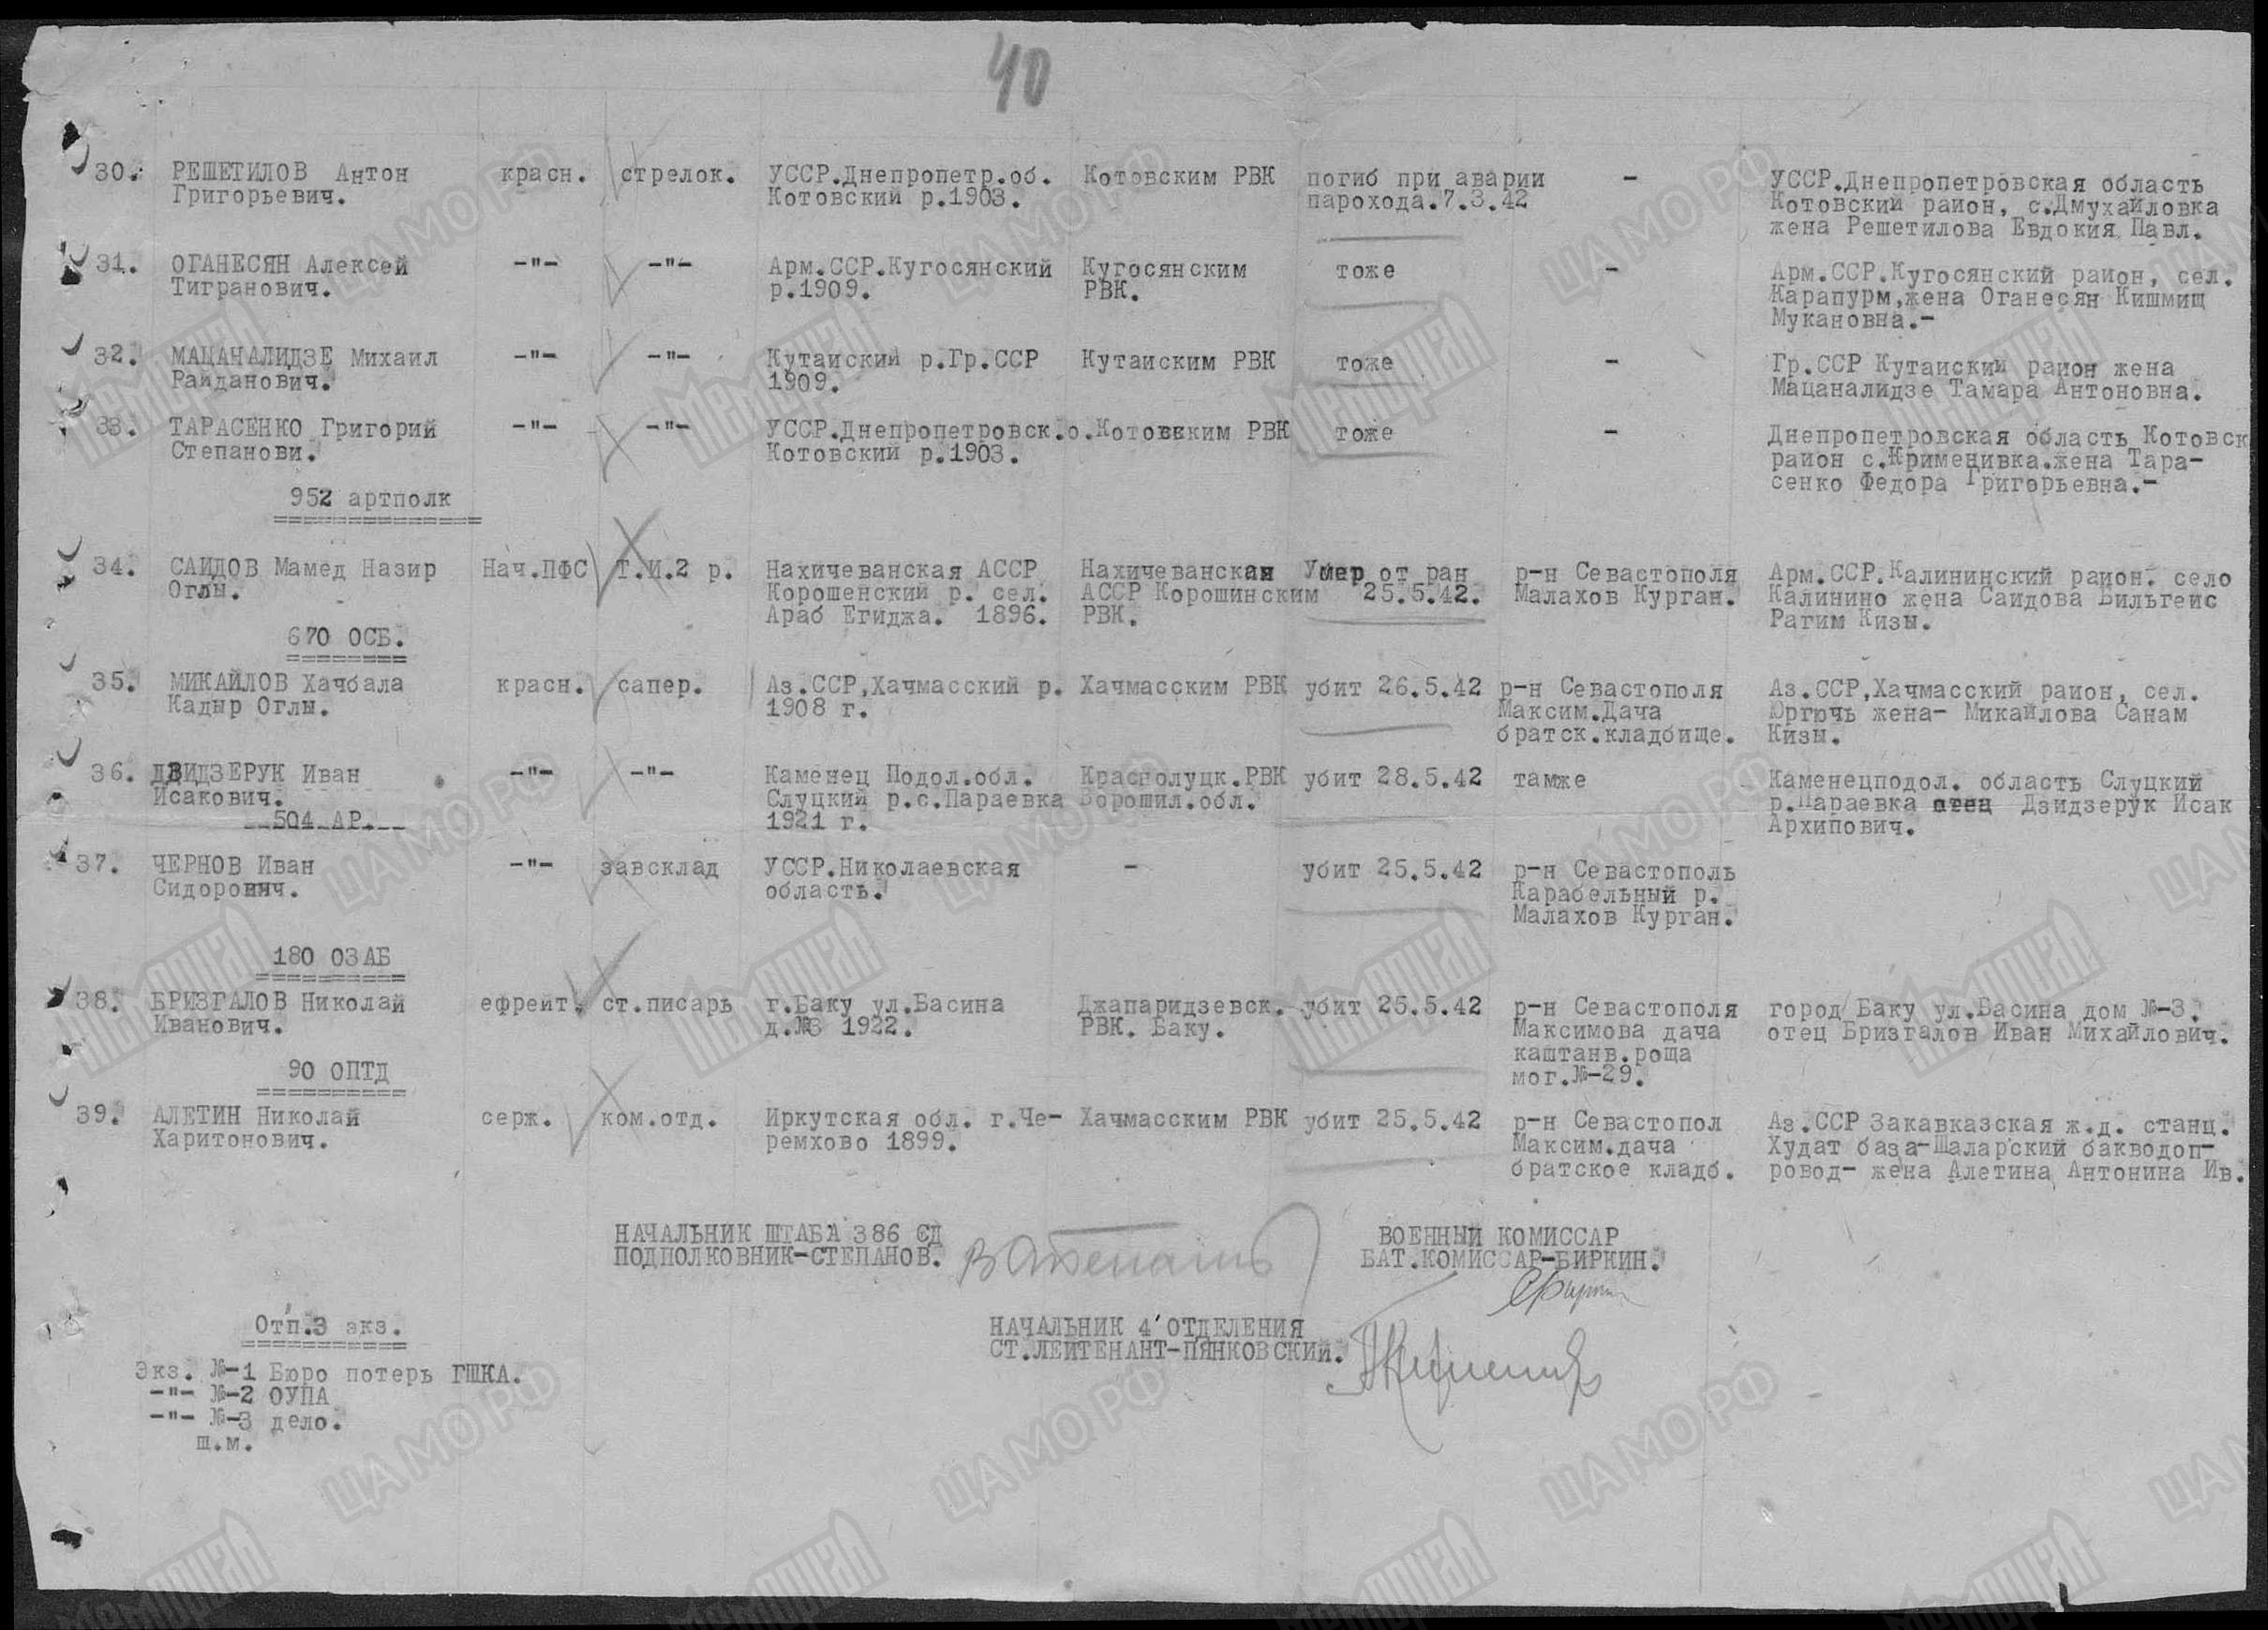 40
30. РЕШЕТИЛОВ Антон красн. стрелок. УССР.Днепропетр.об. Котовским РВК погиб при аварии - УССР.Днепропетровская область
Григорьевич. Котовский р.1903. парохода.7.3.42 Котовский район, с.Дмухайловка
жена Решетилова Евдокия Павл.
31. ОГАНЕСЯН Алексей -"- -"- Арм.ССР.Кугосянский Кугосянским тоже - Арм.ССР.Кугосянский район, сел.
Тигранович. р.1909. РВК. Карапурм,жена Оганесян Кишмищ
Мукановна.-
32. МАЦАНАЛИДЗЕ Михаил -"- -"- Кутаиский р.Гр.ССР Кутаиским РВК тоже - Гр.ССР Кутаиский район жена
Райданович. 1909. Мацаналидзе Тамара Антоновна.
33. ТАРАСЕНКО Григорий -"- -"- УССР.Днепропетровск.о. Котовским РВК тоже - Днепропетровская область Котовск
Степанови. Котовский р.1903. район с.Крименивка.жена Тара-
сенко Федора Григорьевна.-
952 артполк
34. САИДОВ Мамед Назир Нач.ПФС Т.И.2 р. Нахичеванская АССР Нахичеванская Умер от ран р-н Севастополя Арм.ССР.Калининский район. село
Оглы. Корошенский р. сел. АССР Корошинским 25.5.42. Малахов Курган. Калинино жена Саидова Вильгеис
Араб Егиджа. 1896. РВК. Рагим Кизы.
670 ОСБ.
35. МИКАЙЛОВ Хачбала красн. сапер. Аз.ССР,Хачмасский р. Хачмасским РВК убит 26.5.42 р-н Севастополя Аз.ССР,Хачмасский район, сел.
Кадыр Оглы. 1908 г. Максим.Дача Юргючь жена- Микайлова Санам
братск.кладбище. Кизы.
36. ДЗИДЗЕРУК Иван -"- -"- Каменец Подол.обл. Краснолуцк.РВК убит 28.5.42 тамже Каменецподол. область Слуцкий
Исакович. Слуцкий р.с.Параевка Ворошил.обл. р.Параевка отец Дзидзерук Исак
504 АР. 1921 г. Архипович.
37. ЧЕРНОВ Иван -"- завсклад УССР.Николаевская - убит 25.5.42 р-н Севастополь
Сидорович. область. Карабельный р.
Малахов Курган.
180 ОЗАБ
38. БРИЗГАЛОВ Николай ефрейт. ст.писарь г.Баку ул.Басина Джапаридзевск. убит 25.5.42 р-н Севастополя город Баку ул.Басина дом №-3.
Иванович. д.№3 1922. РВК. Баку. Максимова дача отец Бризгалов Иван Михайлович.
каштанв.роща
мог.№-29.
90 ОПТД
39. АЛЕТИН Николай серж. ком.отд. Иркутская обл. г.Че- Хачмасским РВК убит 25.5.42 р-н Севастопол Аз.ССР Закавказская ж.д. станц.
Харитонович. ремхово 1899. Максим.дача Худат база-Шаларский бакводоп-
братское кладб. ровод- жена Алетина Антонина Ив.
НАЧАЛЬНИК ШТАБА 386 СД ВОЕННЫЙ КОМИССАР
ПОДПОЛКОВНИК-СТЕПАНОВ. БАТ.КОМИССАР-БИРКИН.
НАЧАЛЬНИК 4 ОТДЕЛЕНИЯ
СТ.ЛЕЙТЕНАНТ-ПЯНКОВСКИЙ.
Отп.3 экз.
Экз. №-1 Бюро потерь ГШКА.
-"- №-2 ОУПА
-"- №-3 дело.
ш.м.